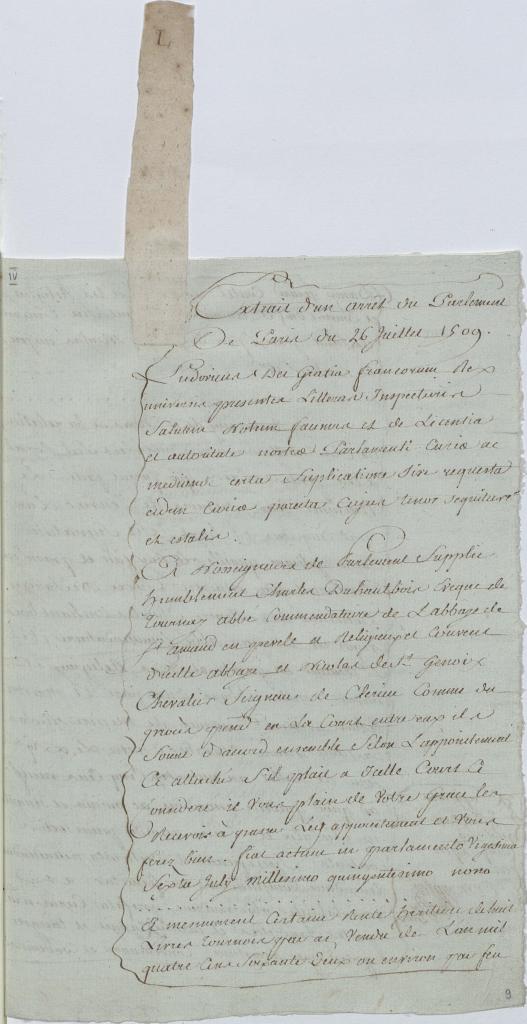 L
IV
Extrait d'un arrêt du Parlement
De Paris du 26 Juillet 1509.
Ludovicus Dei Gratia francorum Rex
universis presentes Litteras Inspecturis
Salutem Notum facimus et de Licentia
et autoritate nostræ Parlamenti Curiæ ac
mediante certa Supplicatione Sive requesta
eidem Curiæ Cujus tenor sequitur
et est talis.
A Nosseigneurs de Parlement Supplie
humblement Charles Duhautbois Eveque de
Tournay abbé Commendataire de L'abbaye de
St amand en pevele et Religieux et Couvent
d'icelle abbaye et Nicolas de St Genois
Chevalier Seigneur de Clerieu Comme du
procès pend. en La Court entre eux ils
Soient d'accord ensemble Selon L'appointement
Ci attaché S'il plait a Icelle Court Ce
considere il Vous plaise de Votre Grace les
Recevoir à passer Led. appointement et Vous
ferez bien. fiat actum in parlamento Vigesima
Sexta July millesimo quingentesimo nono
. . . . . . . . . .
et mesmement Certaine Rente héritière de huit
Livres tournois par an Vendu de L'an mil
quatre Cens Soixante Deux ou environ par feu
9